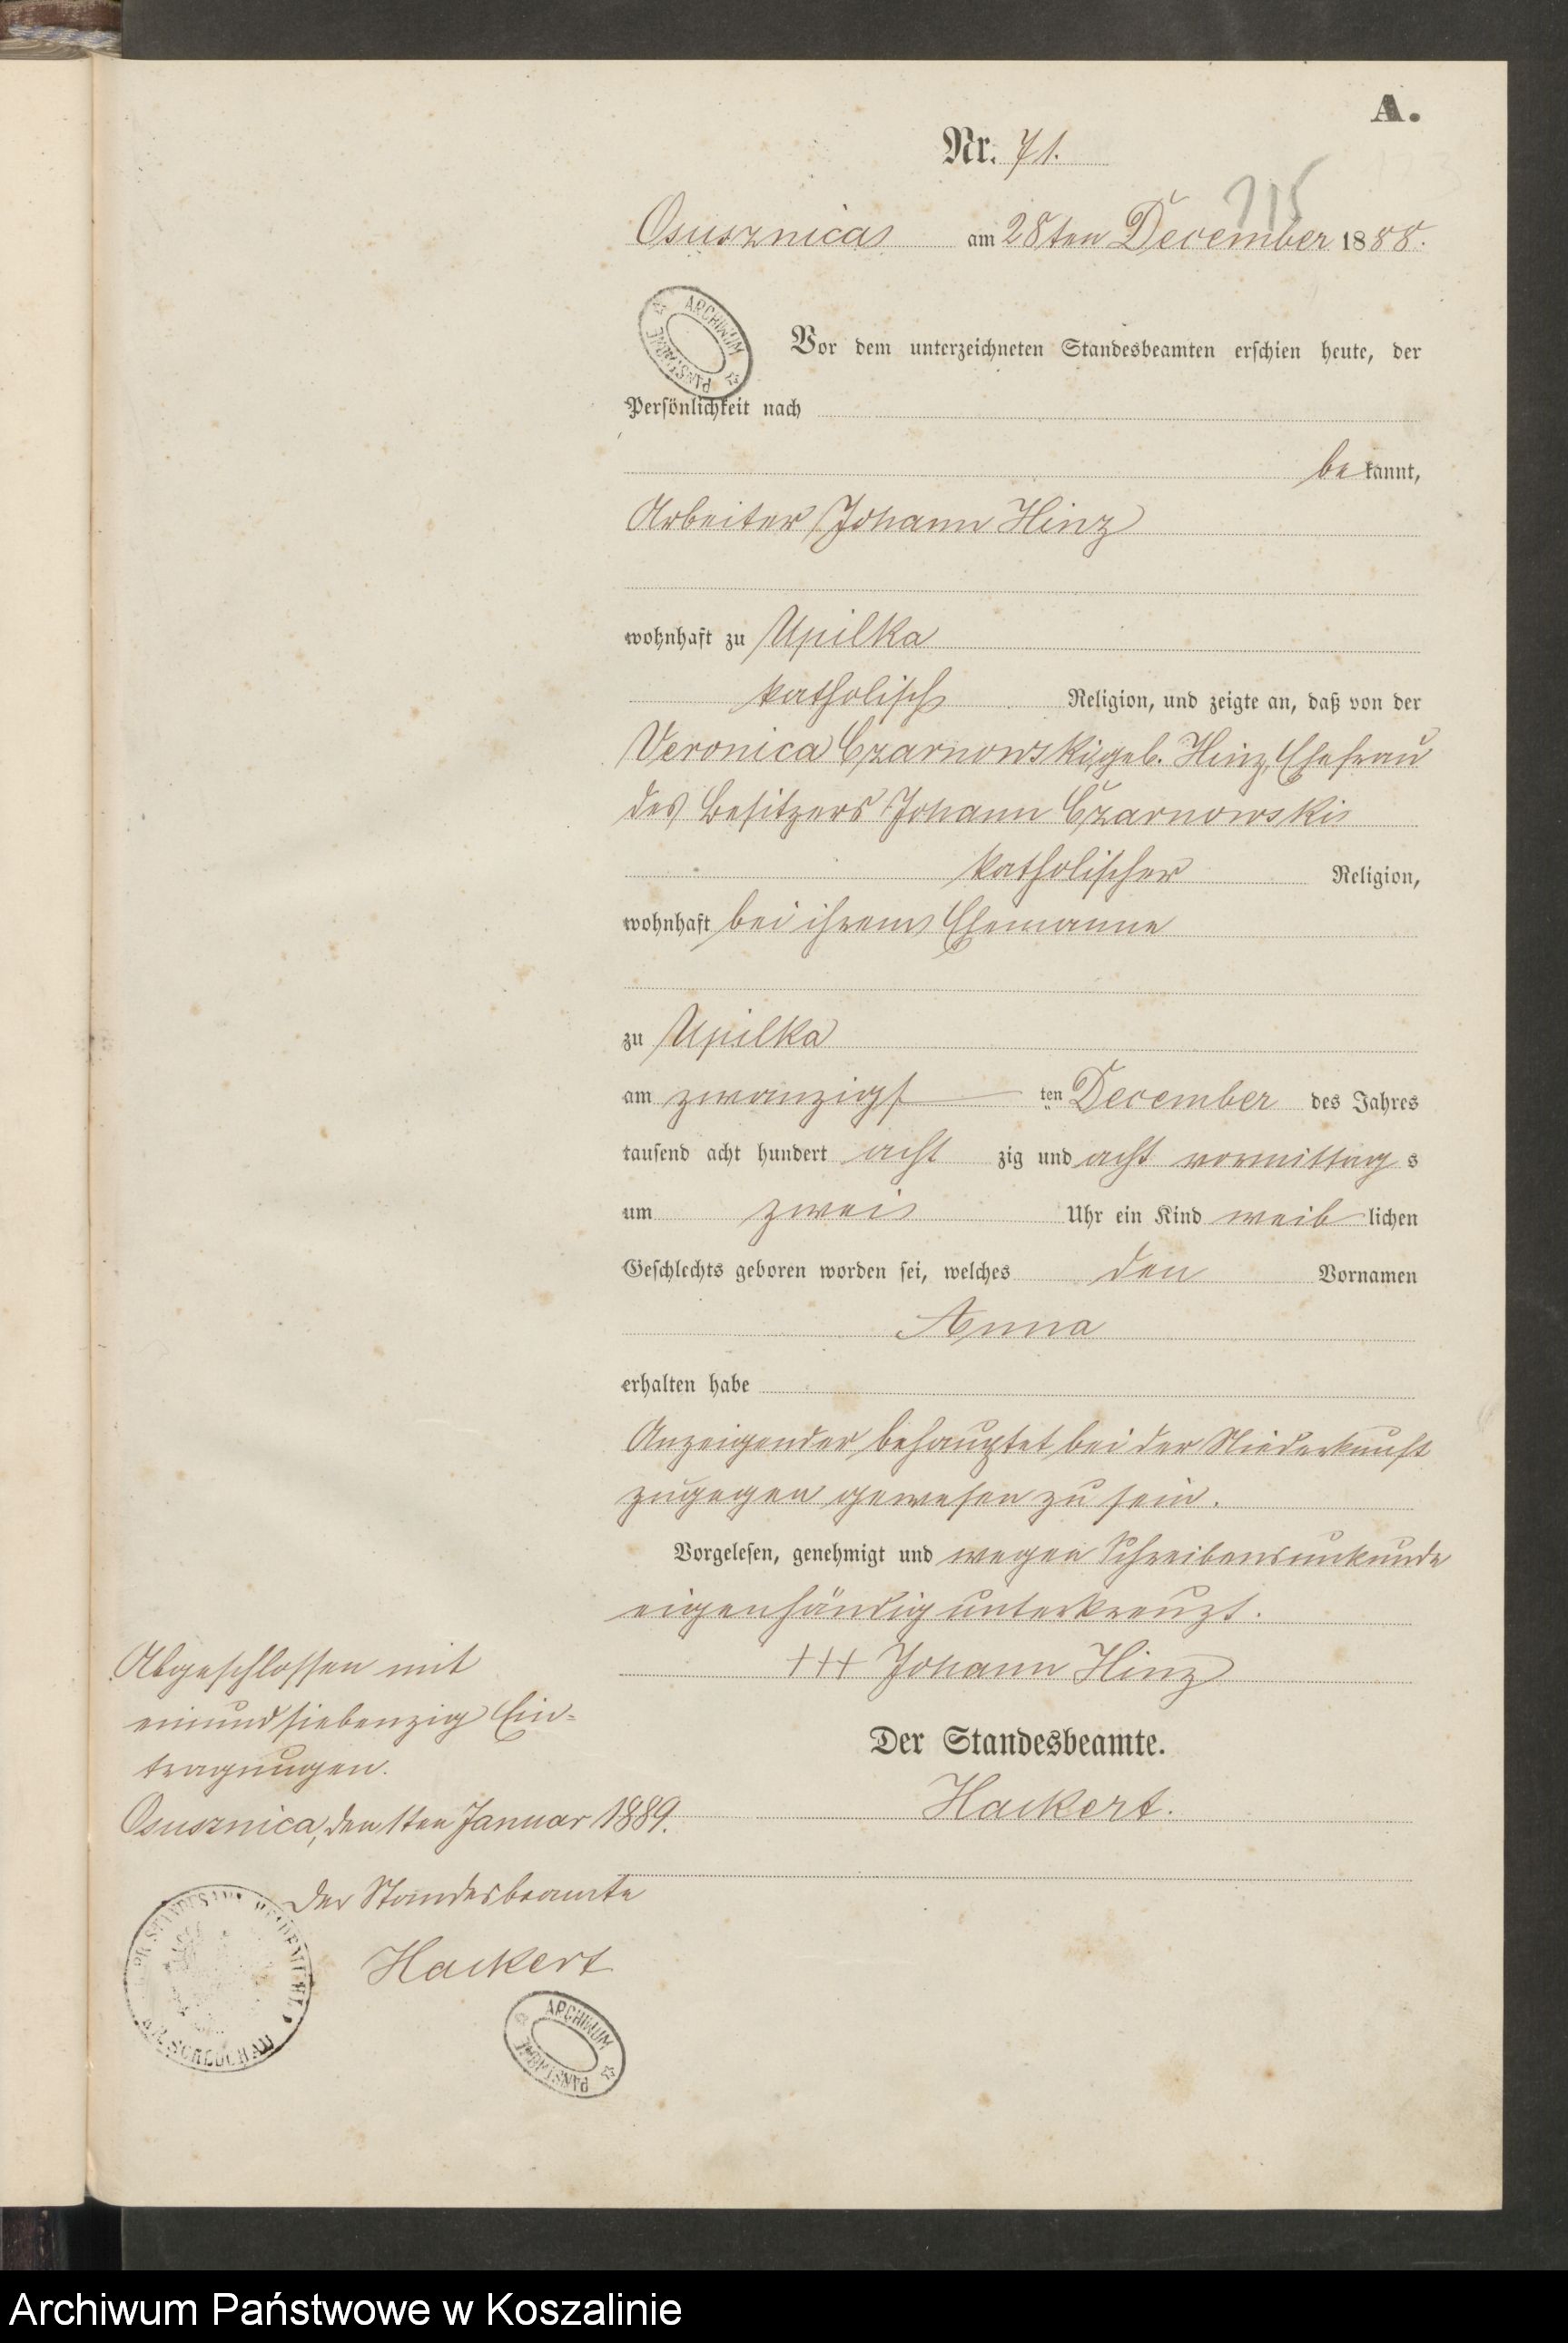 A.
Nr. 71.
115
Osusznica am 28ten December 1888.
ARCHIWUM PAŃSTWOWE
Vor dem unterzeichneten Standesbeamten erschien heute, der
Persönlichkeit nach
bekannt,
Arbeiter Johann Hinz
wohnhaft zu Upilka
katholisch Religion, und zeigte an, daß von der
Veronica Czarnowski, geb. Hinz, Ehefrau
des Besitzers Johann Czarnowski
katholischer Religion,
wohnhaft bei ihrem Ehemanne
zu Upilka
am zwanzigsten December des Jahres
tausend acht hundert acht zig und acht vormittags
um zwei Uhr ein Kind weiblichen
Geschlechts geboren worden sei, welches den Vornamen
Anna
erhalten habe
Anzeigender behauptet bei der Niederkunft
zugegen gewesen zu sein.
Vorgelesen, genehmigt und wegen Schreibensunkunde
eigenhändig unterkreuzt.
+++ Johann Hinz
Der Standesbeamte.
Hackert.
Abgeschlossen mit
einundsiebenzig Ein=
tragungen.
Osusznica, den 1ten Januar 1889.
Der Standesbeamte
Hackert
SCHLOCHAU
ARCHIWUM PAŃSTWOWE
Archiwum Państwowe w Koszalinie